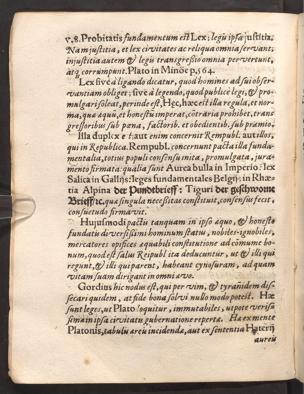 v.8. Probitatis fundamentum est Lex: legū ipsa justitia.
Nam justitia, et lex civitates ac reliqua omnia servant;
injustitia autem & legū transgreßio omnia pervetunt,
atq; corrumpunt. Plato in Minoë p. 564.
Lex sive à ligandi dicatur, quod homines ad sui obser-
vantiam obliget: sive à legendo, quod publicè legi, & pro-
mulgari soleat, perinde est. Hęc, hæc est illa regula, et nor-
ma, quæ æquū, et honestū imperat, cōtraria prohibet, trans-
greßoribus sub pœna, factorib. et obedientib. sub præmio.
Illa duplex est: aut enim concernit Rempubl. aut illos,
qui in Republica. Rempubl. concernunt pacta illa funda-
mentalia, totius populi consensu mita, promulgata, jura-
mento firmata: qualia sunt Aurea bulla in Imperio: lex
Salica in Gallijs: leges fundamentales Belgij: in Rhæ-
tia Alpina der Pündtbrieff: Tiguri der geschworne
Brieff &c. quæ singula necessitas constituit, consensus fecit,
consuetudo firmavit.
Hujusmodi pactū tanquam in ipso æquo, & honesto
fundatū diversissimi hominum status, nobiles-ignobiles,
mercatores opifices æquabili constitutione ad cōmune bo-
num, quod est salus Reipubl. ita deducuntur, ut & illi qui
regunt, & illi qui parent, habeant cynosuram, ad quam
vitam suam dirigant in omni ævo.
Gordius hic nodus est, qui per vim, & tyrannidem dis-
secari quidem, at fide bona solvi nullo modo potest. Hæ
sunt leges, ut Plato loquitur, immutabiles, utpote verißi-
mæ in ipsa civitatū gubernatione repertæ. Hæ ex mente
Platonis, tabulū æreū incidendæ, aut ex sententia Haterij
aureis